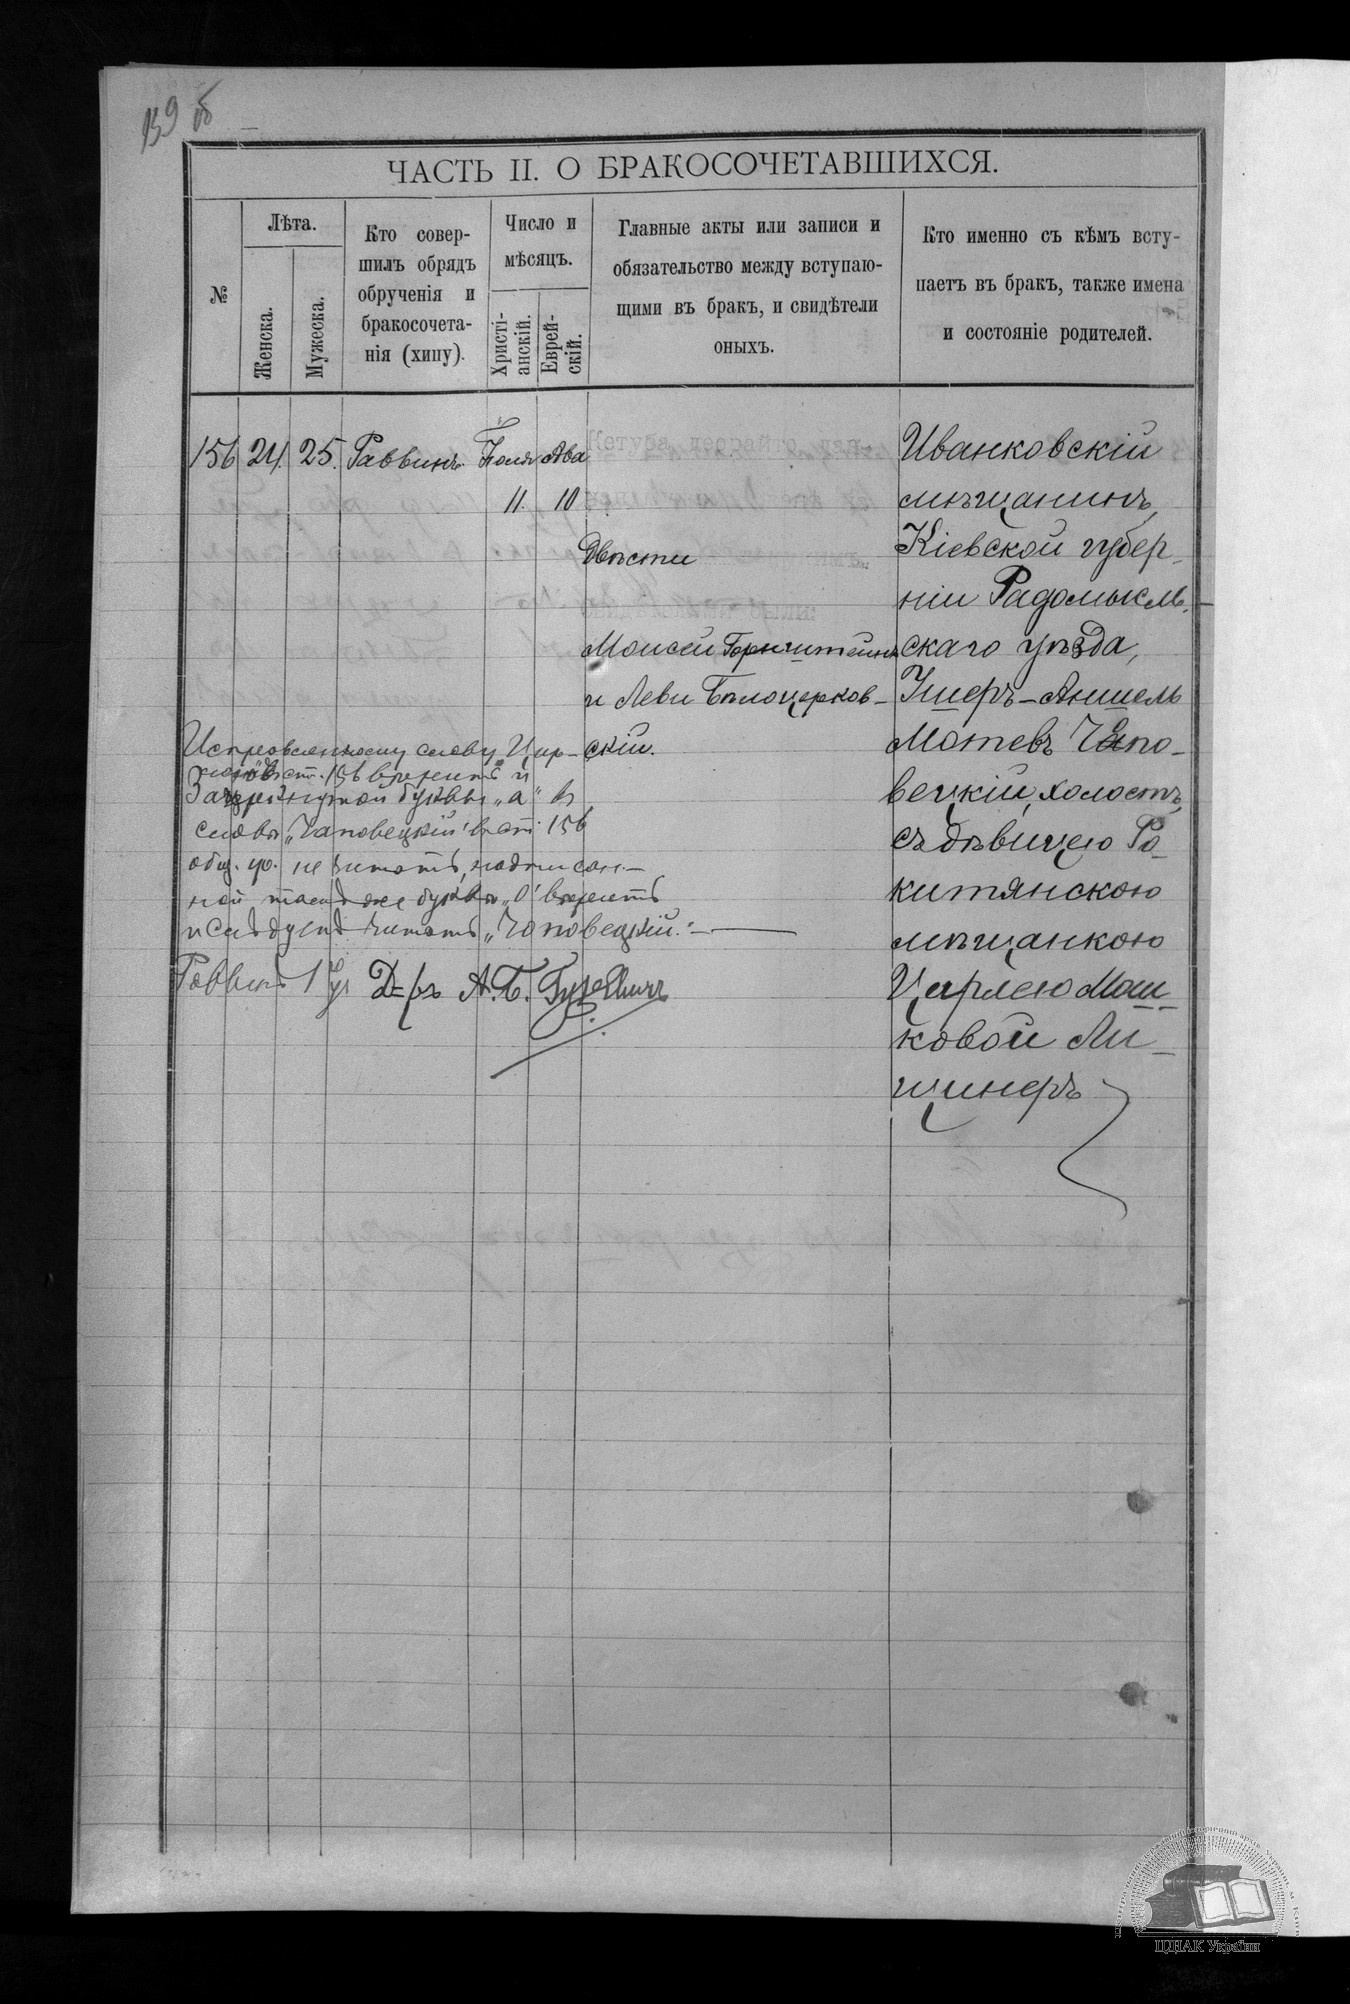 139 об
ЧАСТЬ II. О БРАКОСОЧЕТАВШИХСЯ.
№
Лѣта.
Женска.
Мужеска.
Кто совер-
шилъ обрядъ
обрученія и
бракосочета-
нія (хипу).
Число и
мѣсяцъ.
Христі-
анскій.
Еврей-
скій.
Главные акты или записи и
обязательство между вступаю-
щими въ бракъ, и свидѣтели
оныхъ.
Кто именно съ кѣмъ всту-
паетъ въ бракъ, также имена
и состояніе родителей.
156 24. 25. Раввинъ Іюля Ава
11. 10
Двѣсти
Моисей Горнштейнъ
и Леви Бѣлоцерков-
скій.
Иванковскій
мѣщанинъ,
Кіевской губер-
ніи Радомысль-
скаго уѣзда,
Ушеръ-Аншель
Мотевъ Чапо-
вецкій, холостъ,
съ дѣвицею Ра-
китянскою
мѣщанкою
Цирлею Мош-
ковой Ли-
щинеръ
Исправленному слову „Цир-
лею" въ ст. 156 вѣрить и
Зачеркнутой буквы „а" въ
словѣ „Чаповецкій" въ ст. 156
не читать, надписан-
ной тамъ же буквѣ „о" вѣрить
и слѣдуетъ читать „Чоповецкій."
Раввинъ Д-ръ А. Б. Гуревичъ
ЦДІАК України